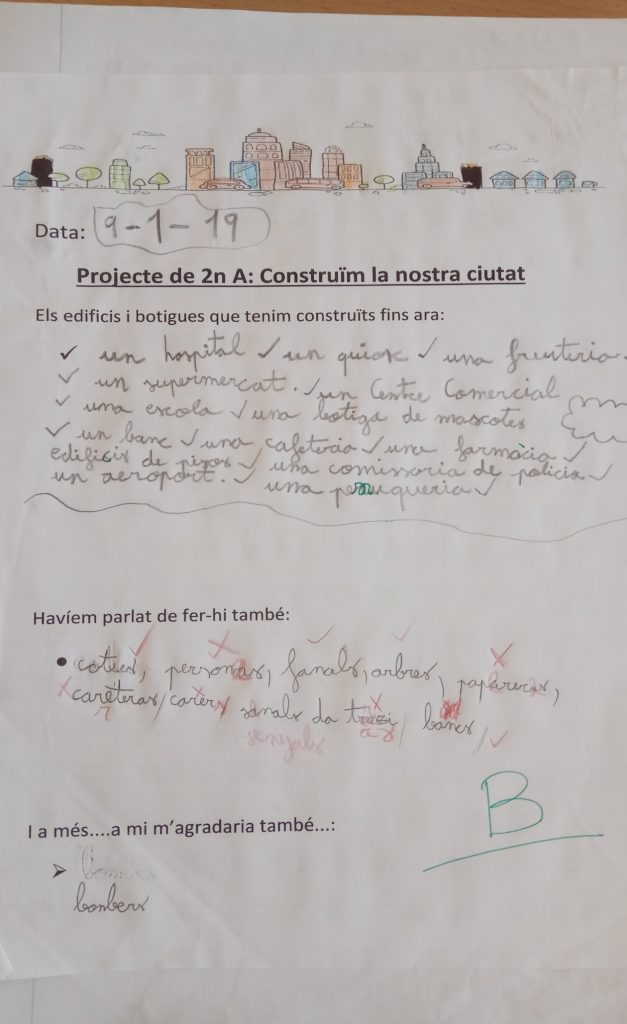 Data: 9-1-19
Projecte de 2n A: Construïm la nostra ciutat
Els edificis i botigues que tenim construïts fins ara:
✓ un hospital ✓ un quiosc ✓ una fruiteria.
✓ un supermercat. ✓ un Centre Comercial
✓ una escola ✓ una botiga de mascotes
✓ un banc ✓ una cafeteria ✓ una farmàcia ✓
edificis de pisos ✓ una comissaria de policia ✓
un aeroport. ✓ una perruqueria ✓
Havíem parlat de fer-hi també:
• cotxes, persones, fanals, arbres, papareres,
careteras, carers, sanals da / bancs /
senyals
B
I a més....a mi m'agradaria també...:
➢ bombe
bonbers